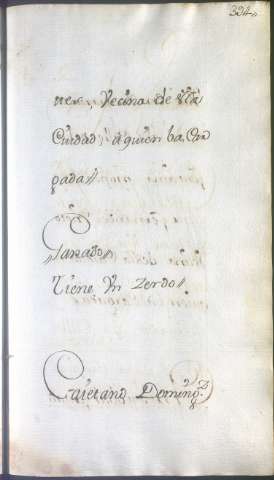 324.
nes, Vecina de esta
Ciudad, a quien ba, Em
pada //
Ganado //
Tiene Un Zerdo //
Caietano Doming.z